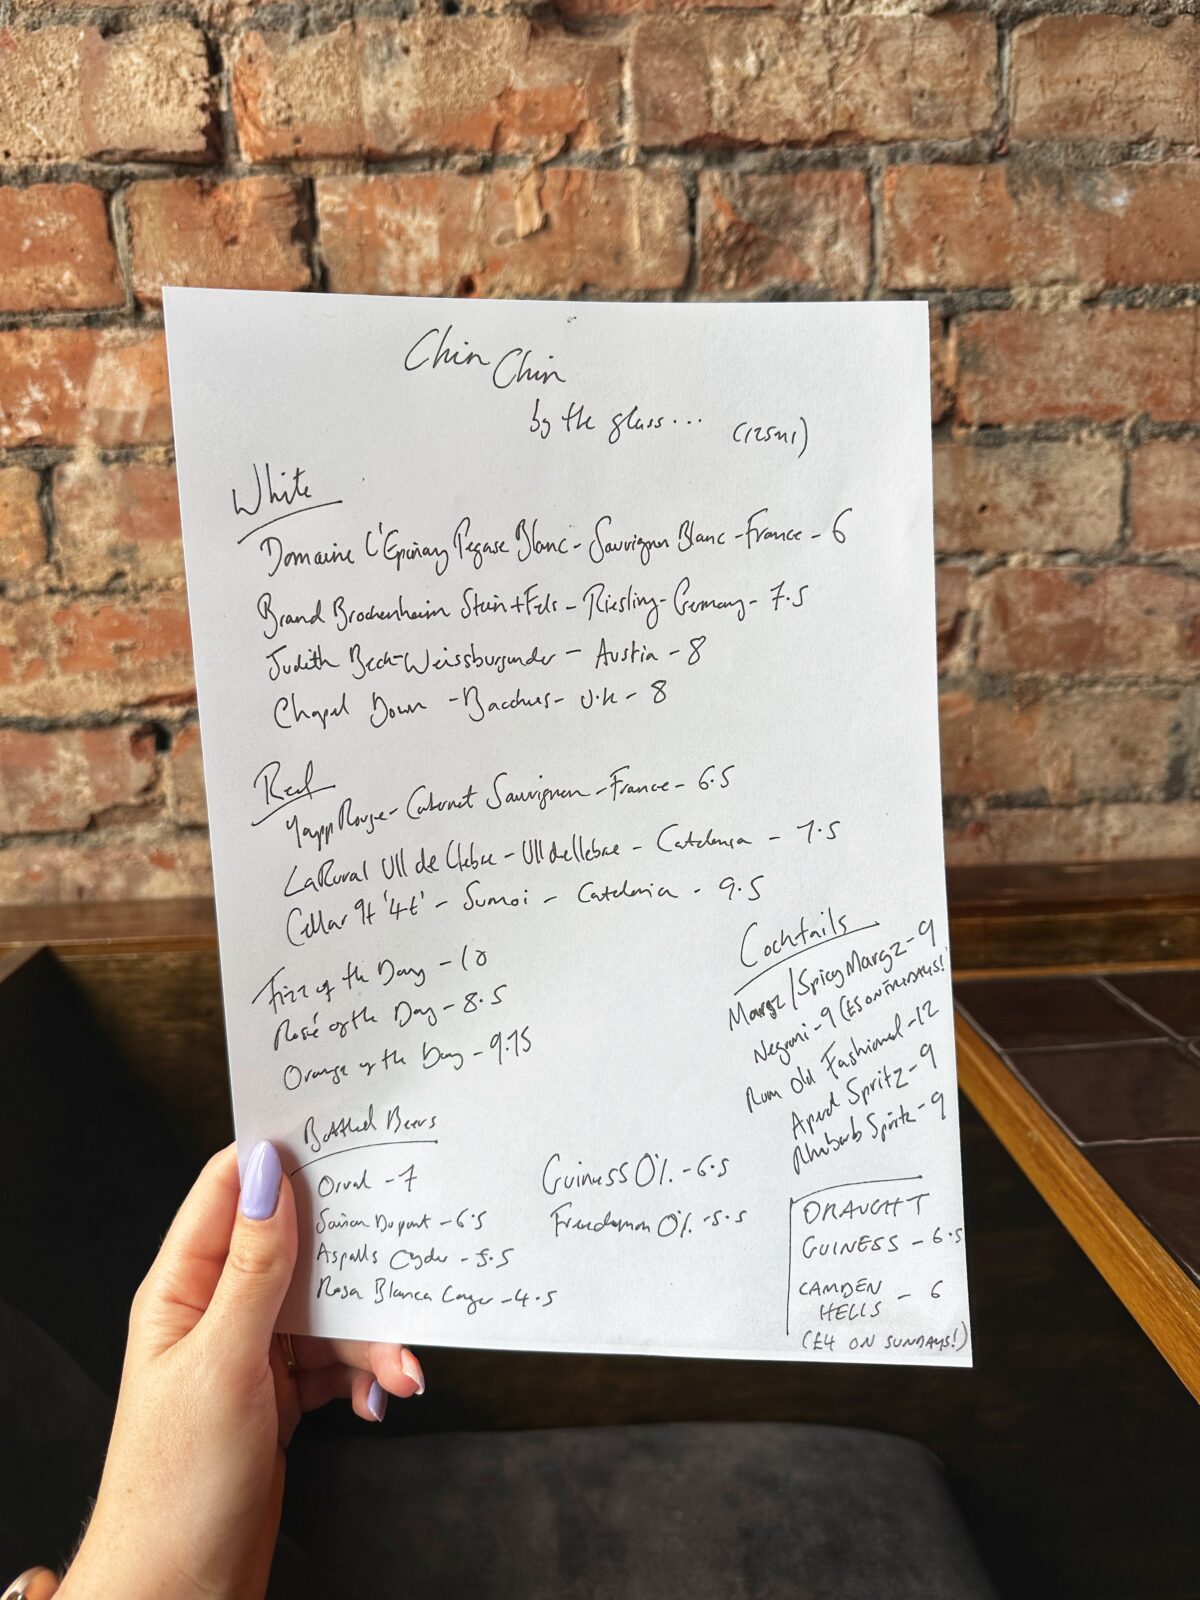 Chin Chin
by the glass... (125ml)
White
Domaine L'Epinay Pegase Blanc - Sauvignon Blanc - France - 6
Brand Brochenheim Stein + Fels - Riesling - Germany - 7.5
Judith Beck - Weissburgunder - Austria - 8
Chapel Down - Bacchus - U.K - 8
Red
Yapp Rouge - Cabernet Sauvignon - France - 6.5
LaRural Ull de Llebre - Ull de llebre - Catalonia - 7.5
Cellar 9+ '4t' - Sumoi - Catalonia - 9.5
Fizz of the Day - 10
Rosé of the Day - 8.5
Orange of the Day - 9.75
Cocktails
Margz / Spicy Margz - 9
Negroni - 9 (£5 ON THURSDAYS!)
Rum Old Fashioned - 12
Aperol Spritz - 9
Rhubarb Spritz - 9
Bottled Beers
Orval - 7
Saison Dupont - 6.5
Aspalls Cyder - 5.5
Rosa Blanca Lager - 4.5
Guiness 0% - 6.5
Freedamm 0% - 5.5
DRAUGHT
GUINESS - 6.5
CAMDEN
HELLS - 6
(£4 ON SUNDAYS!)